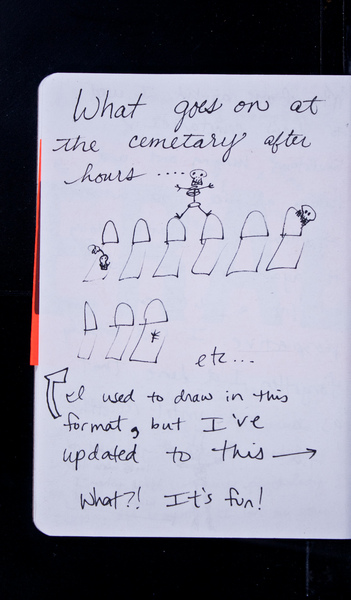 What goes on at
the cemetary after
hours ....
etc...
I used to draw in this
format, but I've
updated to this →
What?! It's fun!